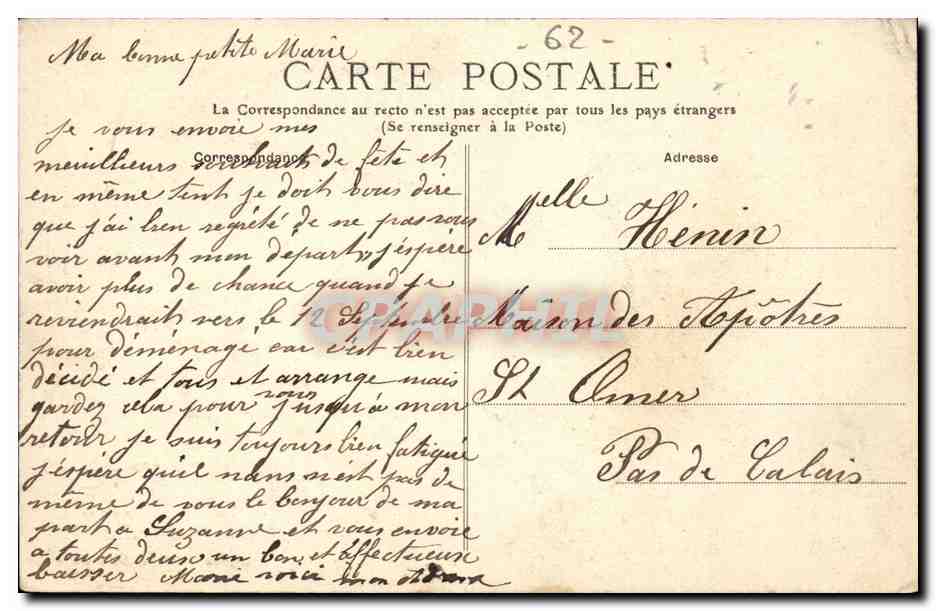 - 62 -
Ma bonne petite Marie
CARTE POSTALE
La Correspondance au recto n'est pas acceptée par tous les pays étrangers
(Se renseigner à la Poste)
Correspondance
Je vous envoie mes
meuillieurs souhaits de fête et
en même tent je doit vous dire
que j'ai bien regrété de ne pas vous
voir avant mon depart, j'éspère
avoir plus de chance quand je
reviendrait vers le 12 Septembre
pour déménagé car c'est bien
décidé et tous et arrange mais
gardez cela pour vous jusqu'à mon
retour je suis toujours bien fatigué
j'éspère qu'il nans n'ést pas de
même de vous le bonjour de ma
part a Suzanne et vous envoie
a toutes deux un bon et éffectueux
baisser Marie voici mon
Adresse
Melle Hénin
Maison des Apôtres
St Omer
Pas de Calais
CPAPHIL